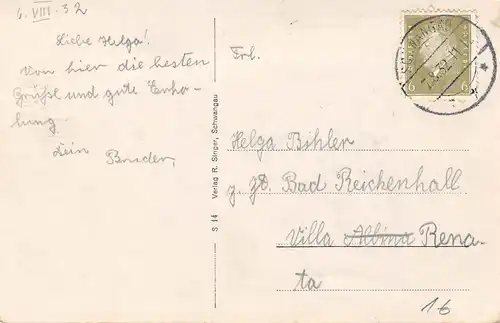 6. VIII. 32
Liebe Helga!
Von hier die besten
Grüße und gute Erho-
lung.
Dein Bruder,
S 14 Verlag R. Singer, Schwangau
Frl.
Helga Bihler
z. Zt. Bad Reichenhall
Villa Albina Rena-
ta
16
7.8.32
6 6